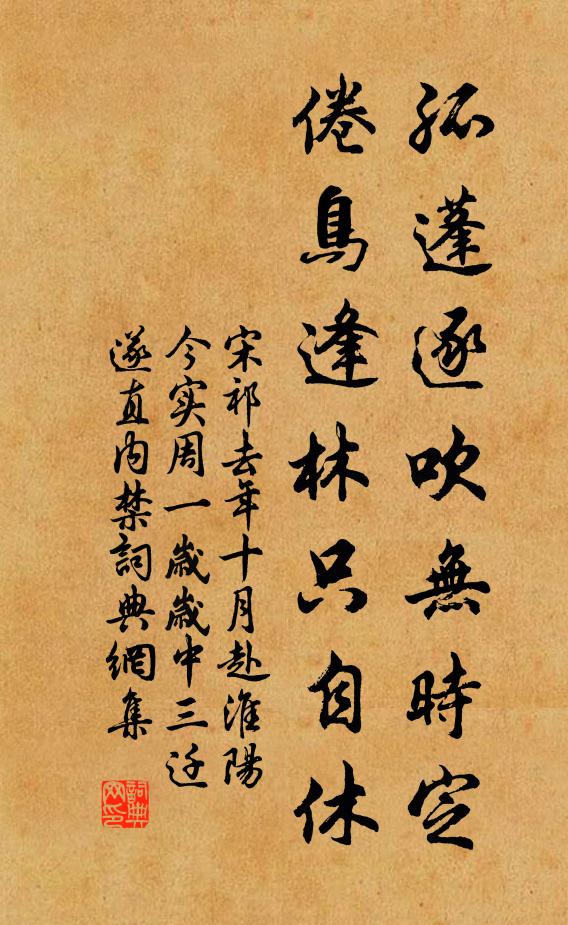 孤蓬逐吹無時定
倦鳥逢林只自休
宋祁去年十月赴淮陽
今实周一歲歲中三迁
遂直内禁詞典網集
詞典網印